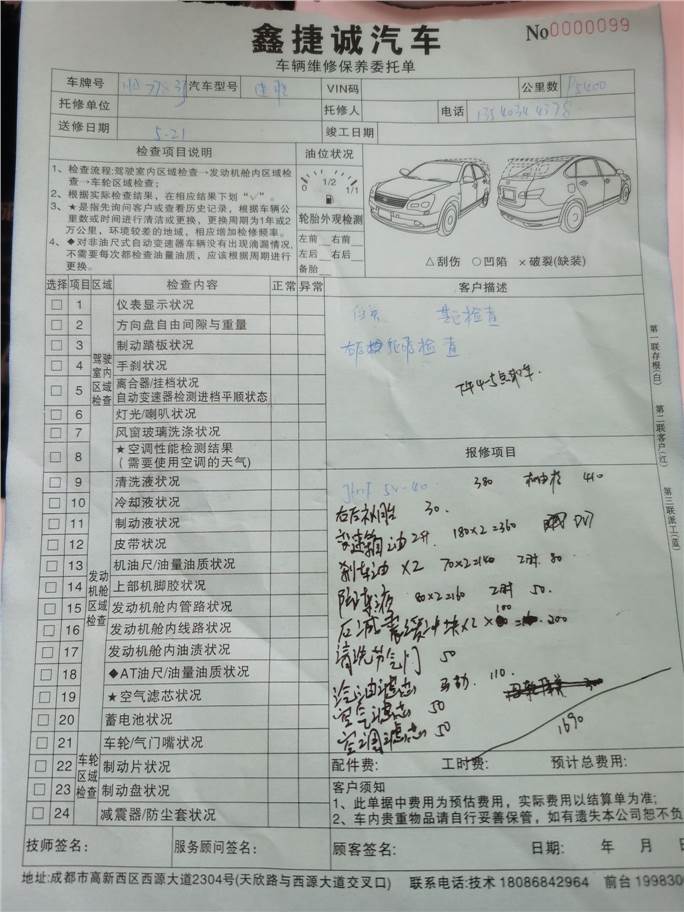 鑫捷诚汽车
No0000099
车辆维修保养委托单
车牌号 汽车型号 VIN码 公里数 15400
托修单位 托修人 电话
送修日期 5-21 竣工日期
检查项目说明
1、检查流程:驾驶室内区域检查→发动机舱内区域检查→车轮区域检查;
2、根据实际检查结果,在相应结果下划“√”。
3、★是指先询问客户或查看历史记录,根据车辆公里数或时间进行清洁或更换,更换周期为1年或2万公里,环境较差的地域,相应增加检修频率。
4、◆对非油尺式自动变速器车辆没有出现滴漏情况,不需要每次都检查油量油质,应该根据周期进行更换。
油位状况
0 1/2 1/1
轮胎外观检测
左前 右前
左后 右后
备胎
△刮伤 ○凹陷 ×破裂(缺装)
选择 项目 区域 检查内容 正常 异常
驾驶室内区域检查
1 仪表显示状况
2 方向盘自由间隙与重量
3 制动踏板状况
4 手刹状况
5 离合器/挂档状况
自动变速器检测进档平顺状态
6 灯光/喇叭状况
7 风窗玻璃洗涤状况
8 ★空调性能检测结果
(需要使用空调的天气)
发动机舱区域检查
9 清洗液状况
10 冷却液状况
11 制动液状况
12 皮带状况
13 机油尺/油量油质状况
14 上部机脚胶状况
15 发动机舱内管路状况
16 发动机舱内线路状况
17 发动机舱内油渍状况
18 ◆AT油尺/油量油质状况
19 ★空气滤芯状况
20 蓄电池状况
车轮区域检查
21 车轮/气门嘴状况
22 制动片状况
23 制动盘状况
24 减震器/防尘套状况
客户描述
检查
轮胎检查
下午4-5点取车
报修项目
5W-40 380 410
右后补胎 30.
变速箱油2升 180×2=360
刹车油×2 70×2=140 工时 80
防冻液 80×2=160 工时 50.
后减震缓冲块×2 200
清洗节气门 50
汽油滤芯 110.
空气滤芯 50
空调滤芯 50
1690
配件费: 工时费: 预计总费用:
客户须知
1、此单据中费用为预估费用,实际费用以结算单为准;
2、车内贵重物品请自行妥善保管,如有遗失本公司恕不负
第一联存根(白)
第二联客户(红)
第三联派工(蓝)
技师签名: 服务顾问签名: 顾客签名: 日期: 年 月
地址:成都市高新西区西源大道2304号(天欣路与西源大道交叉口) 联系电话:技术 18086842964 前台 1998300